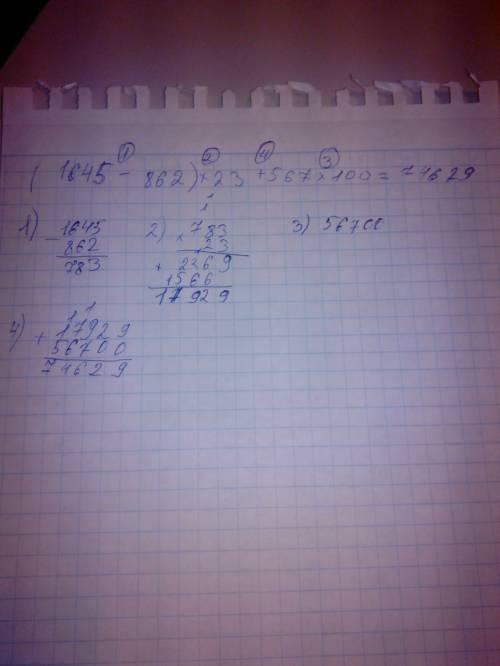 ① ② ④ ③
( 1645 - 862 ) × 23 + 567 × 100 = 74629
1) 1645 2) 783 3) 56700
- 862 × 23
783 + 2269
1566
17929
11
4) + 17929
56700
74629